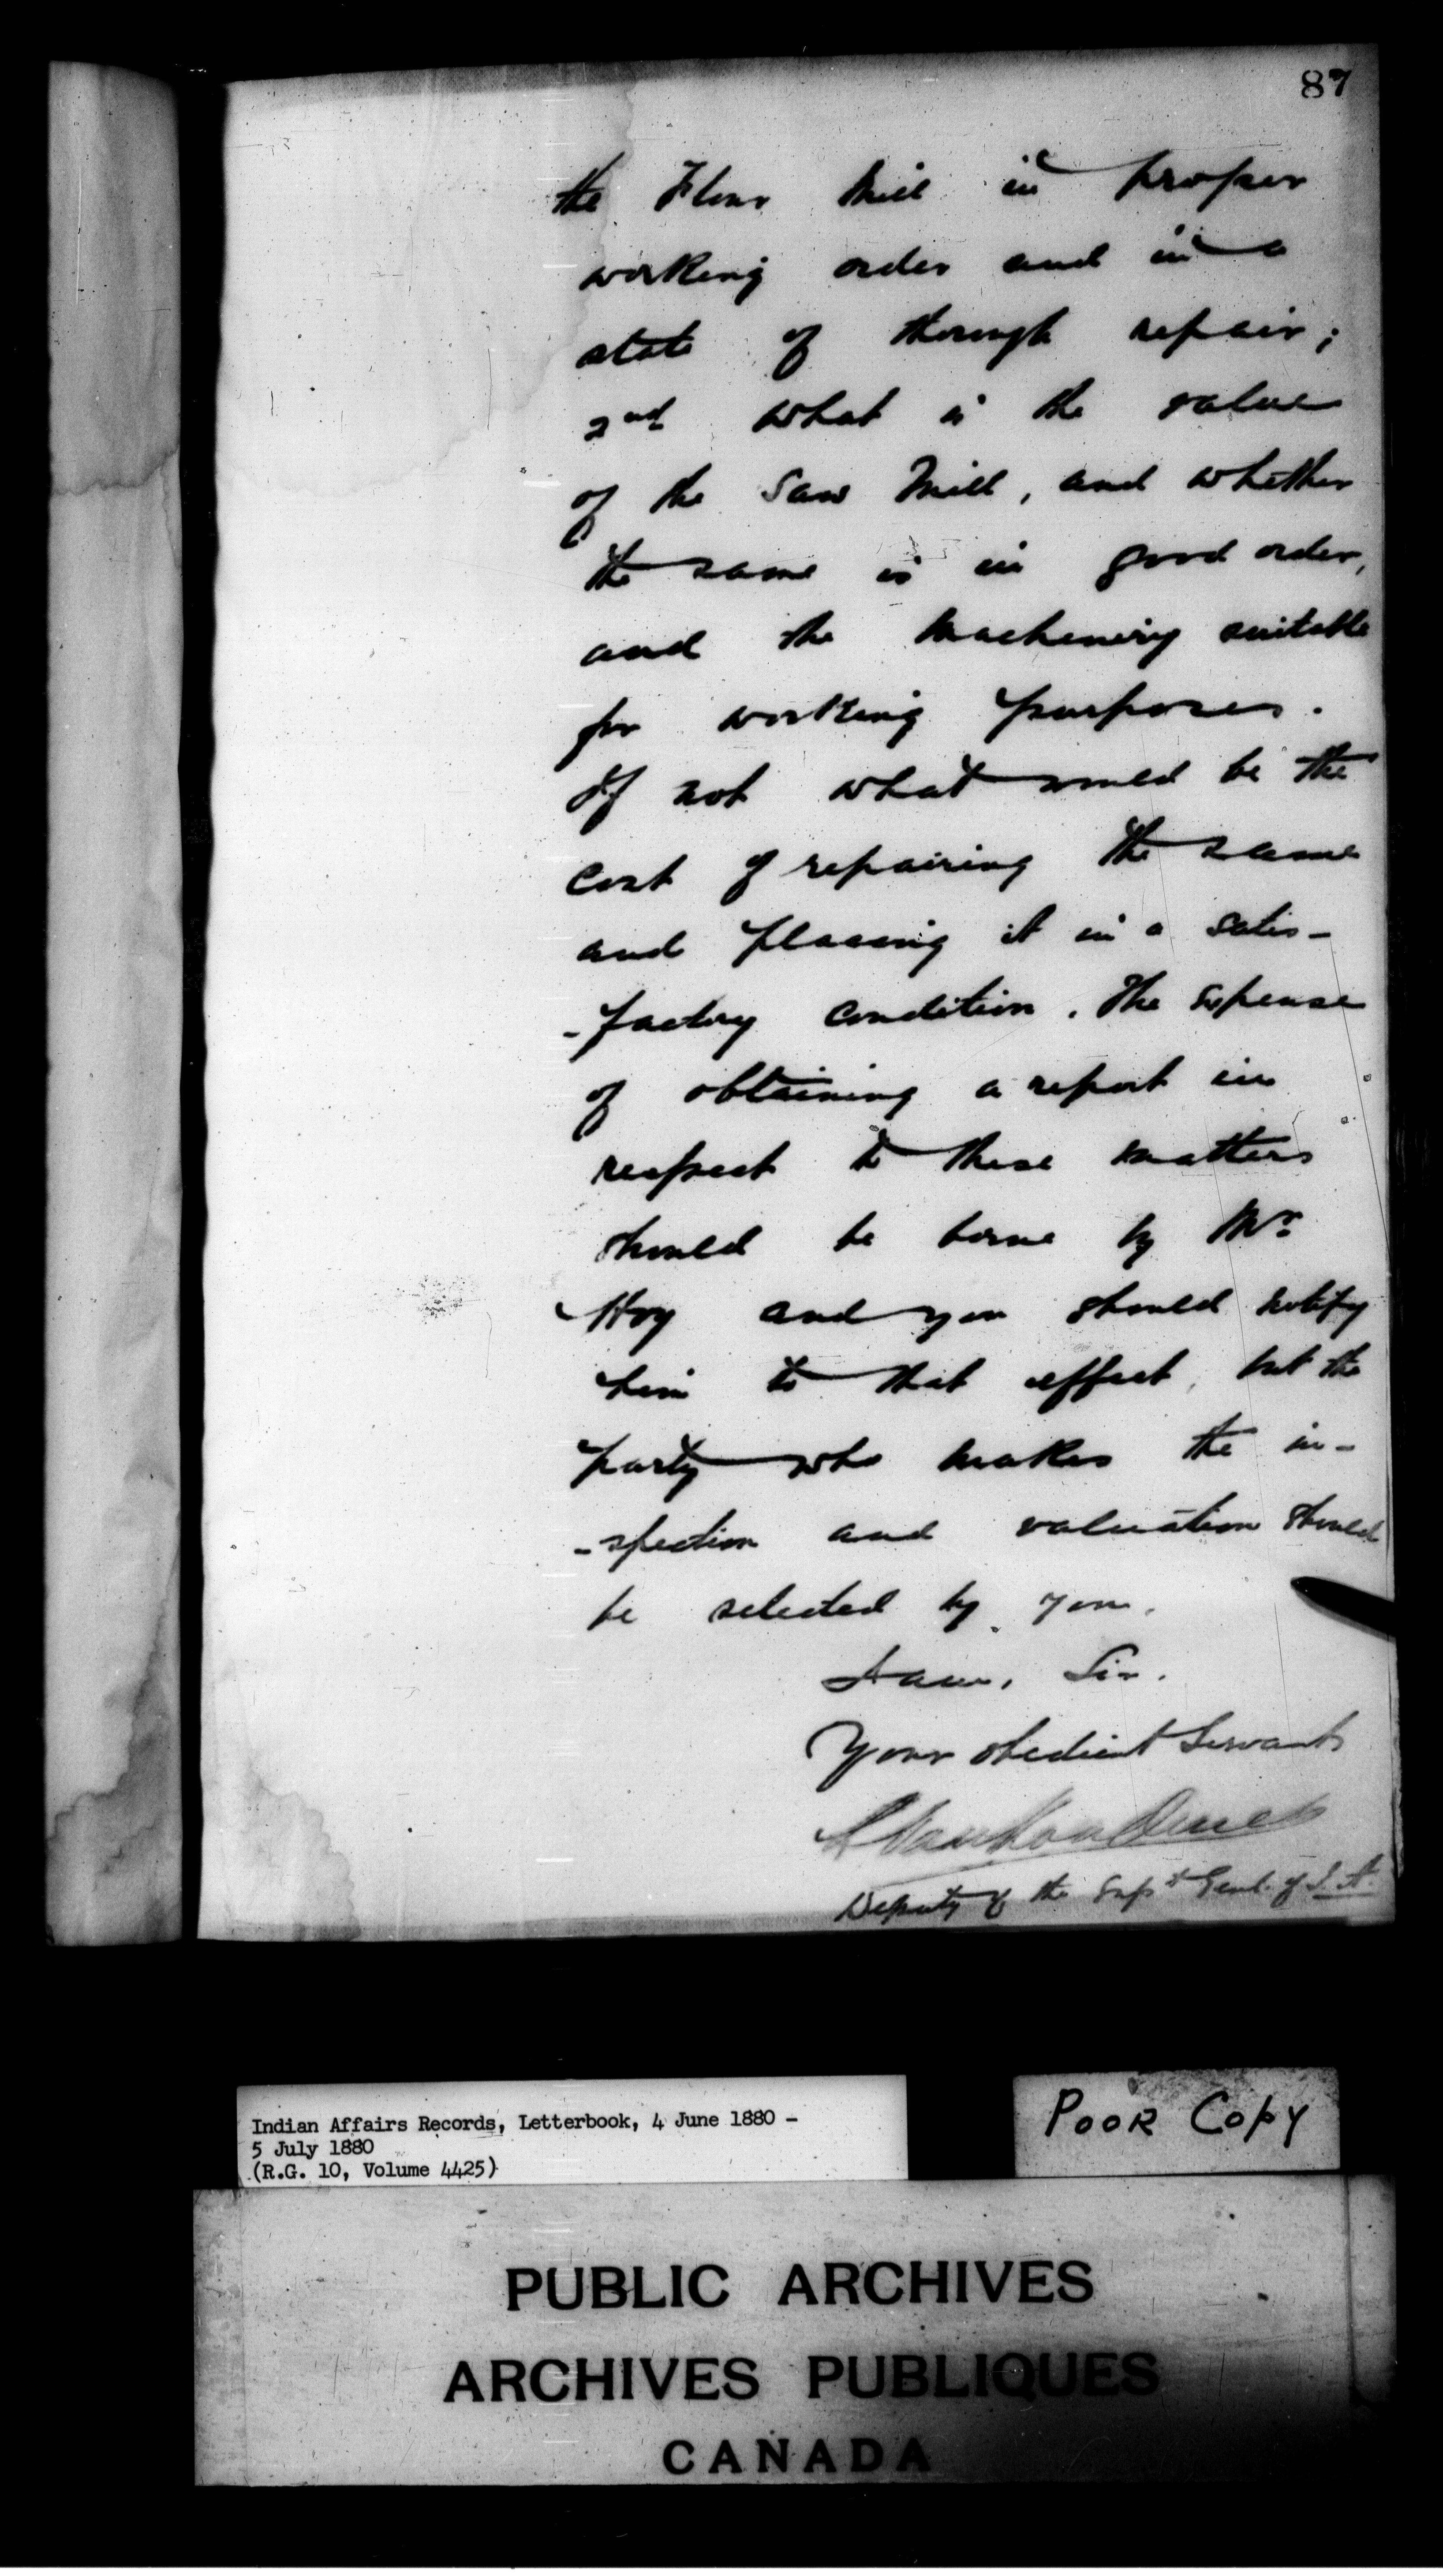 87
the Flour Mill in proper
working order and in a
state of thorough repair;
2nd what is the value
of the Saw Mill, and whether
the same is in good order,
and the machinery suitable
for working purposes.
If not what would be the
cost of repairing the same
and placing it in a satis-
-factory condition. The expense
of obtaining a report in
respect to these matters
should be borne by Mr.
Hoy and you should notify
him to that effect, but the
party who makes the in-
-spection and valuation should
be selected by you.
I am, Sir.
Your obedient Servant
L Vankoughnet
Deputy of the Supt. Genl. of I. A.
Indian Affairs Records, Letterbook, 4 June 1880 -
5 July 1880
(R.G. 10, Volume 4425)
POOR COPY
PUBLIC ARCHIVES
ARCHIVES PUBLIQUES
CANADA